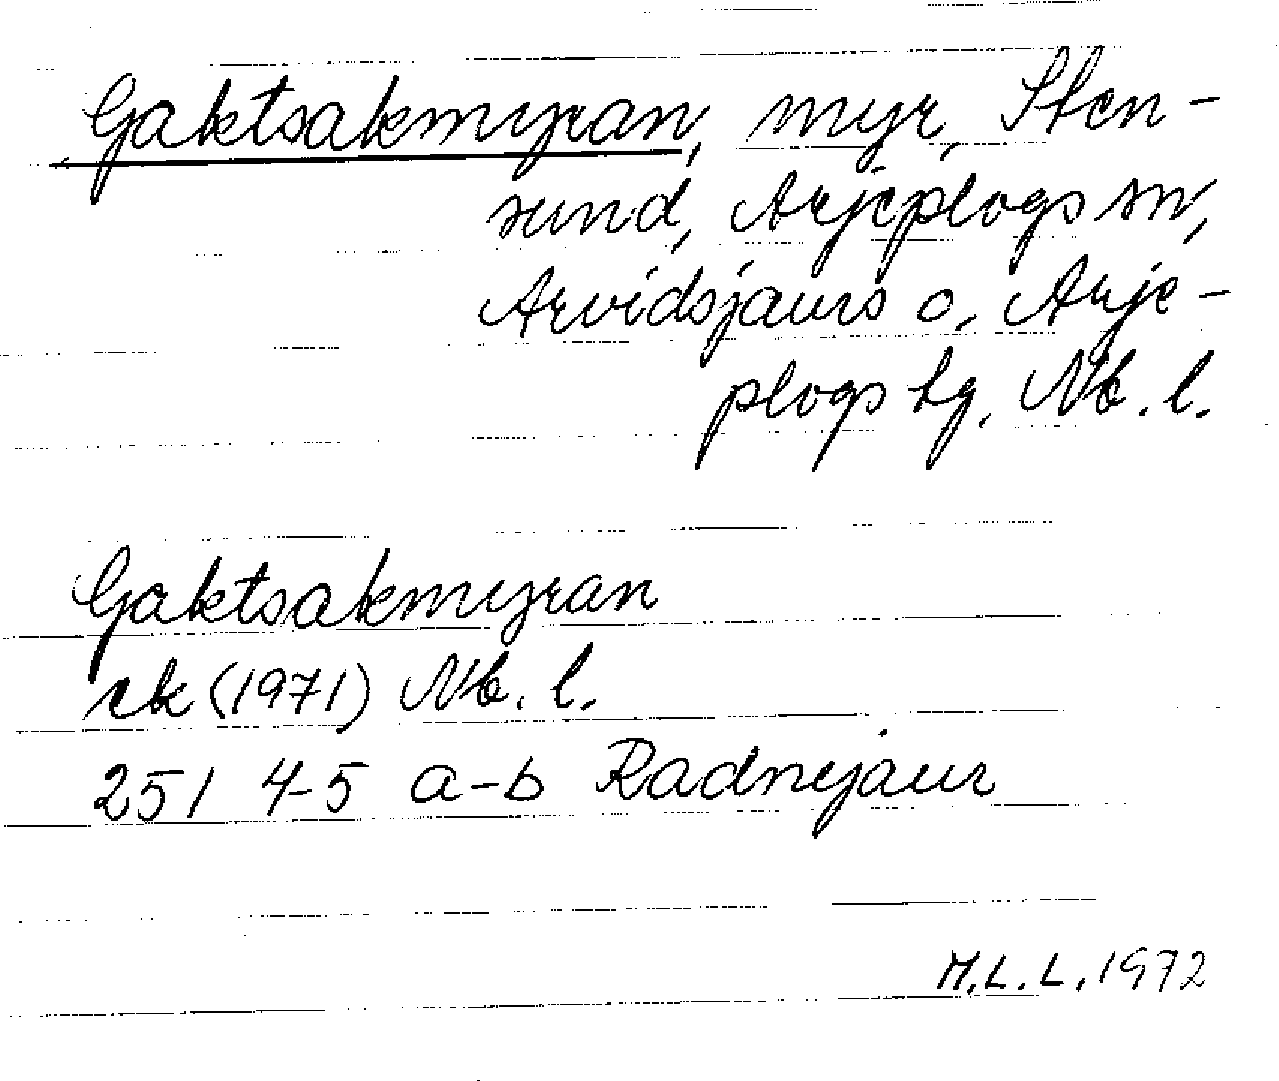 Gaktsakmyran, myr, Sten-
sund, Arjeplogs sn,
Arvidsjaurs o. Arje-
plogs tg. Nb. l.
Gaktsakmyran
rk (1971) Nb. l.
251 4-5 a-b Radnejaur
M.L.L. 1972